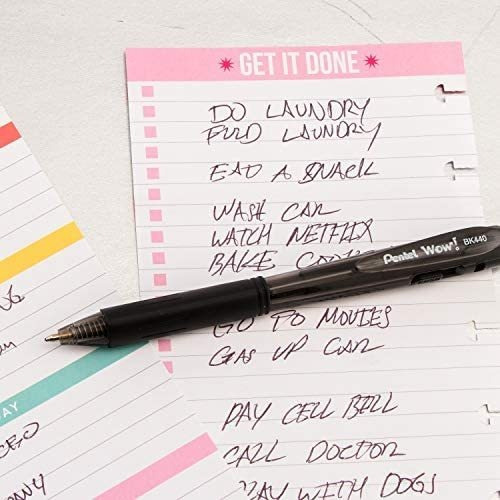 GET IT DONE
DO LAUNDRY
FOLD LAUNDRY
EAT A SNACK
WASH CAR
WATCH NETFLIX
BAKE
Pentel Wow! BK440
GO TO MOVIES
GAS UP CAR
PAY CELL BILL
CALL DOCTOR
WITH DOGS
AY